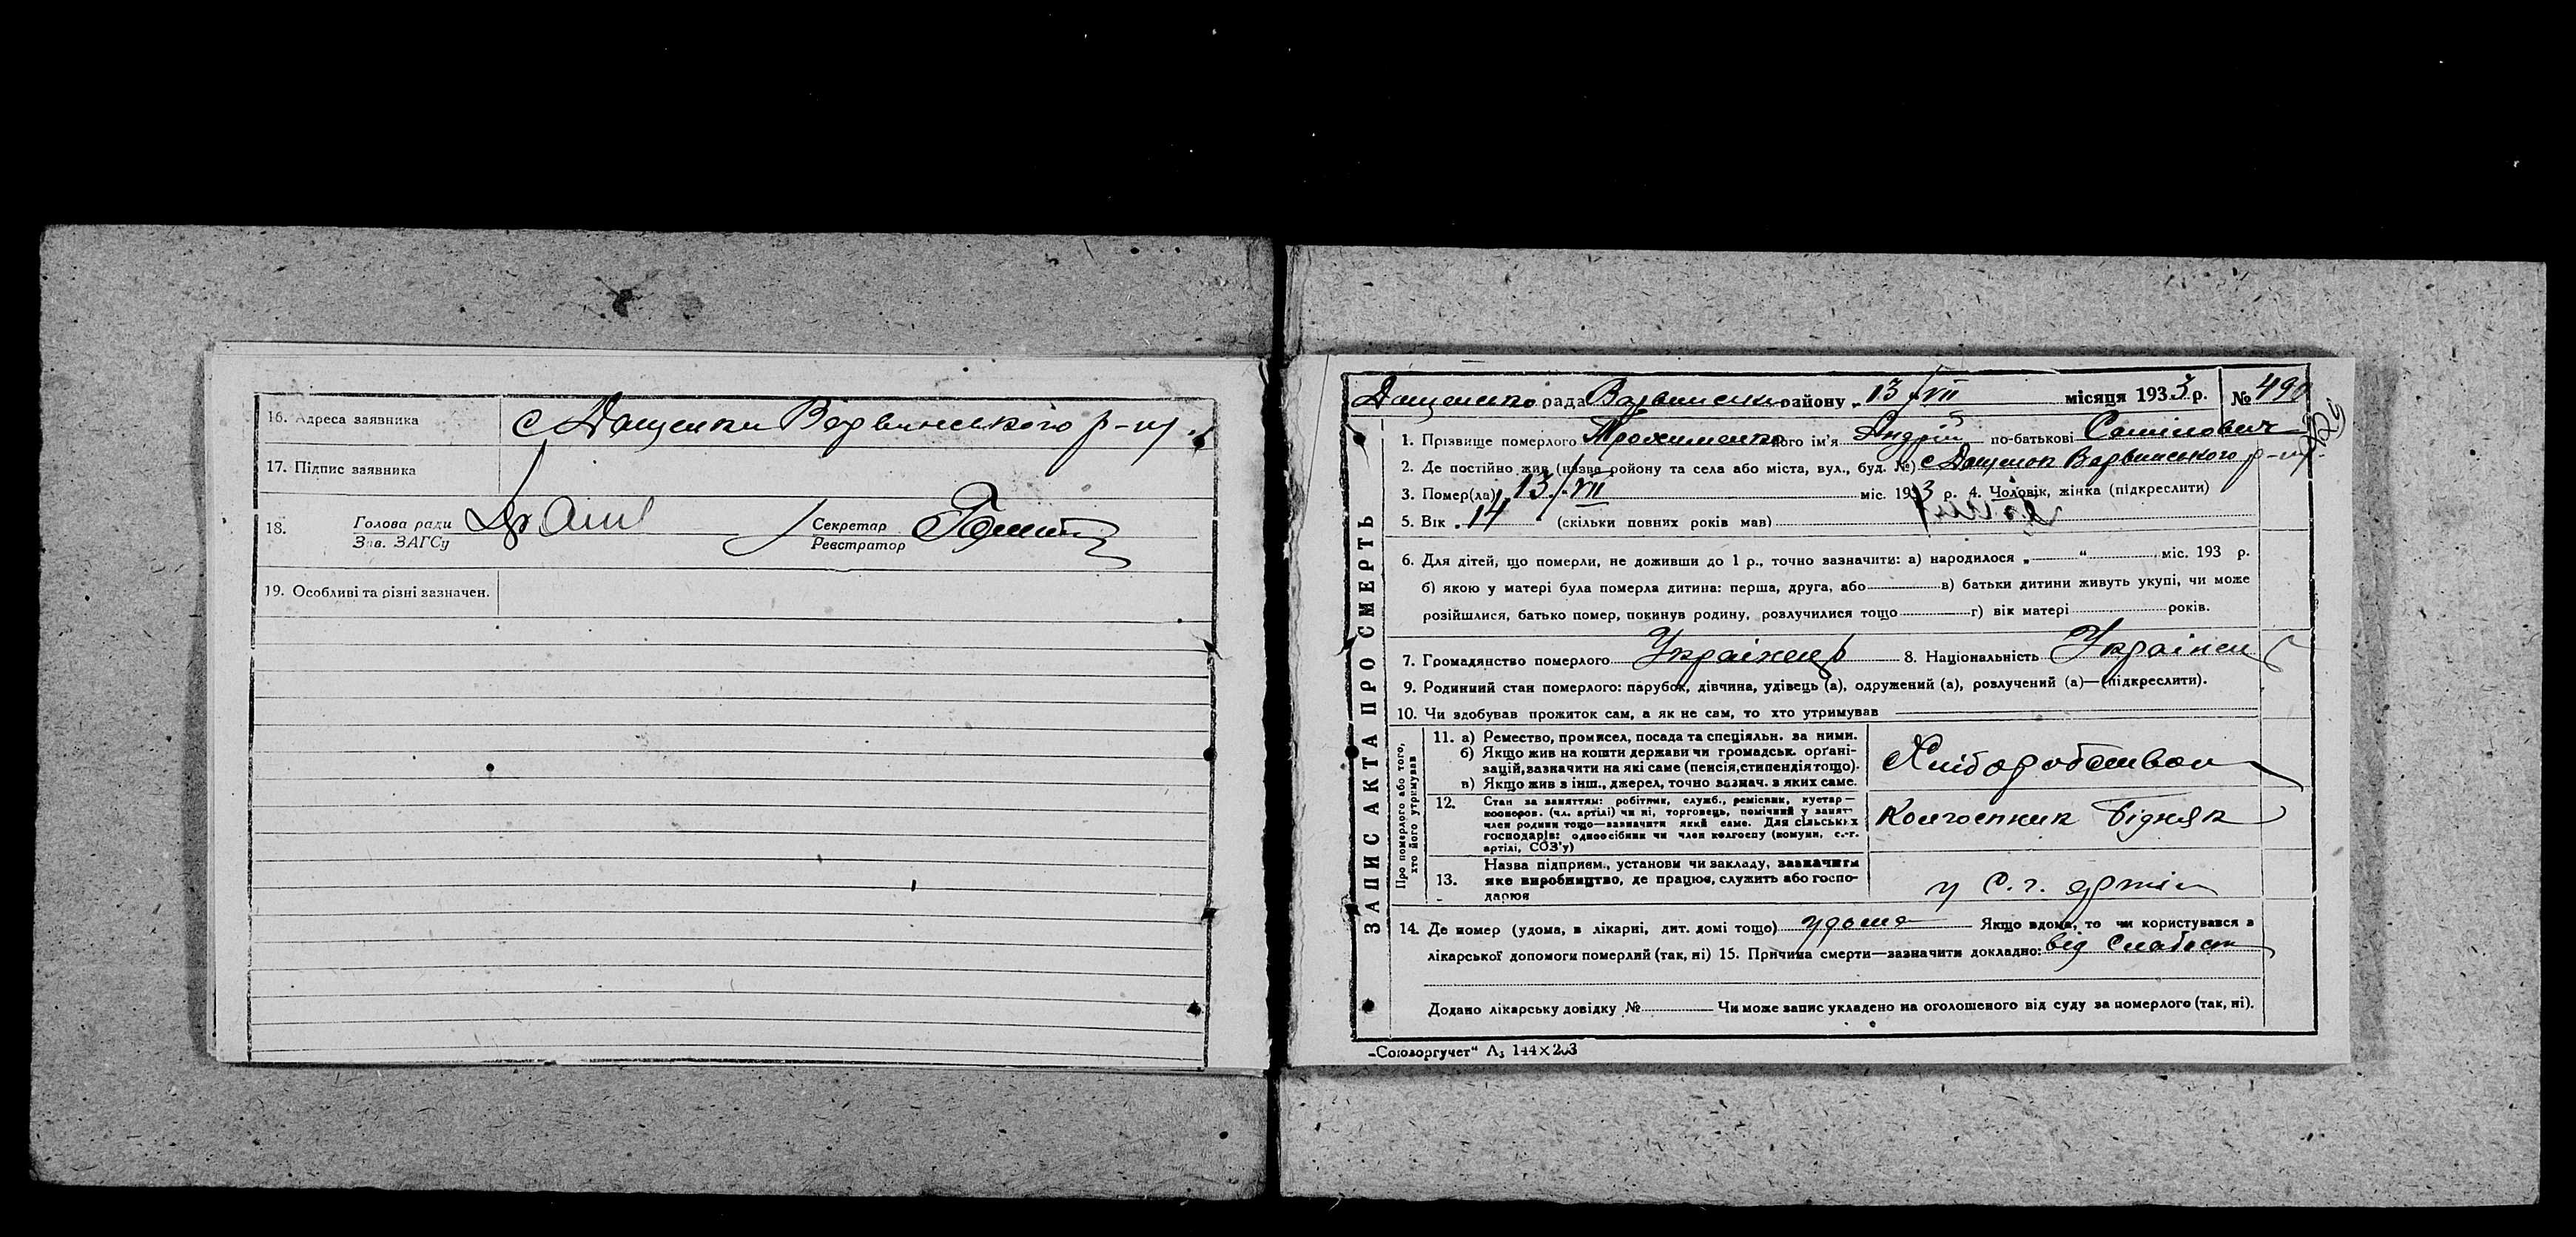 16. Адреса заявника с Дащенки Варвинського р-ну.
17. Підпис заявника
18. Голова ради Секретар
Зав. ЗАГСу Реєстратор
19. Особливі та різні зазначен.
ЗАПИС АКТА ПРО СМЕРТЬ
Дащенсько рада Варвинськ району „13/VII місяця 1933 р. № 490
1. Прізвище померлого Трохименко його ім'я Андрій по-батькові
2. Де постійно жив (назва району та села або міста, вул., буд. №) с Дащенок Варвинського р-ну.
3. Помер(ла) 13/VII міс. 1933 р. 4. Чоловік, жінка (підкреслити)
5. Вік 14 (скільки повних років мав)
6. Для дітей, що померли, не доживши до 1 р., точно зазначити: а) народилося „ “ міс. 193 р.
б) якою у матері була померла дитина: перша, друга, або в) батьки дитини живуть укупі, чи може
розійшлися, батько помер, покинув родину, розлучилися тощо г) вік матері років.
7. Громадянство померлого Українець 8. Національність Українец
9. Родинний стан померлого: парубок, дівчина, удівець (а), одружений (а), розлучений (а)—(підкреслити).
10. Чи здобував прожиток сам, а як не сам, то хто утримував
Про померлого або того,
хто його утримував
11. а) Ремество, промисел, посада та спеціяльн. за ними.
б) Якщо жив на кошти держави чи громадськ. орґані-
зацій, зазначити на які саме (пенсія, стипендія тощо).
в) Якщо жив з інш., джерел, точно зазнач. з яких саме.
Хліборобство
12. Стан за заняттям: робітник, служб., ремісник, кустар—
кооперов. (чл. артілі) чи ні, торговець, помічний у занят.
член родини тощо—зазначити який саме. Для сільських
господарів: одноосібник чи член колгоспу (комуни, с.-г.
артілі, СОЗ'у)
Колгоспник Бідняк
13. Назва підприєм., установи чи закладу, зазначити
яке виробництво, де працює, служить або госпо-
дарює
у С. г. артіл
14. Де помер (удома, в лікарні, дит. домі тощо) удома Якщо вдома, то чи користувався з
лікарської допомоги померлий (так, ні) 15. Причина смерти—зазначити докладно: від Слабост
Додано лікарську довідку № Чи може запис укладено на оголошеного від суду за померлого (так, ні).
„Союзоргучет“ А₅ 144×203